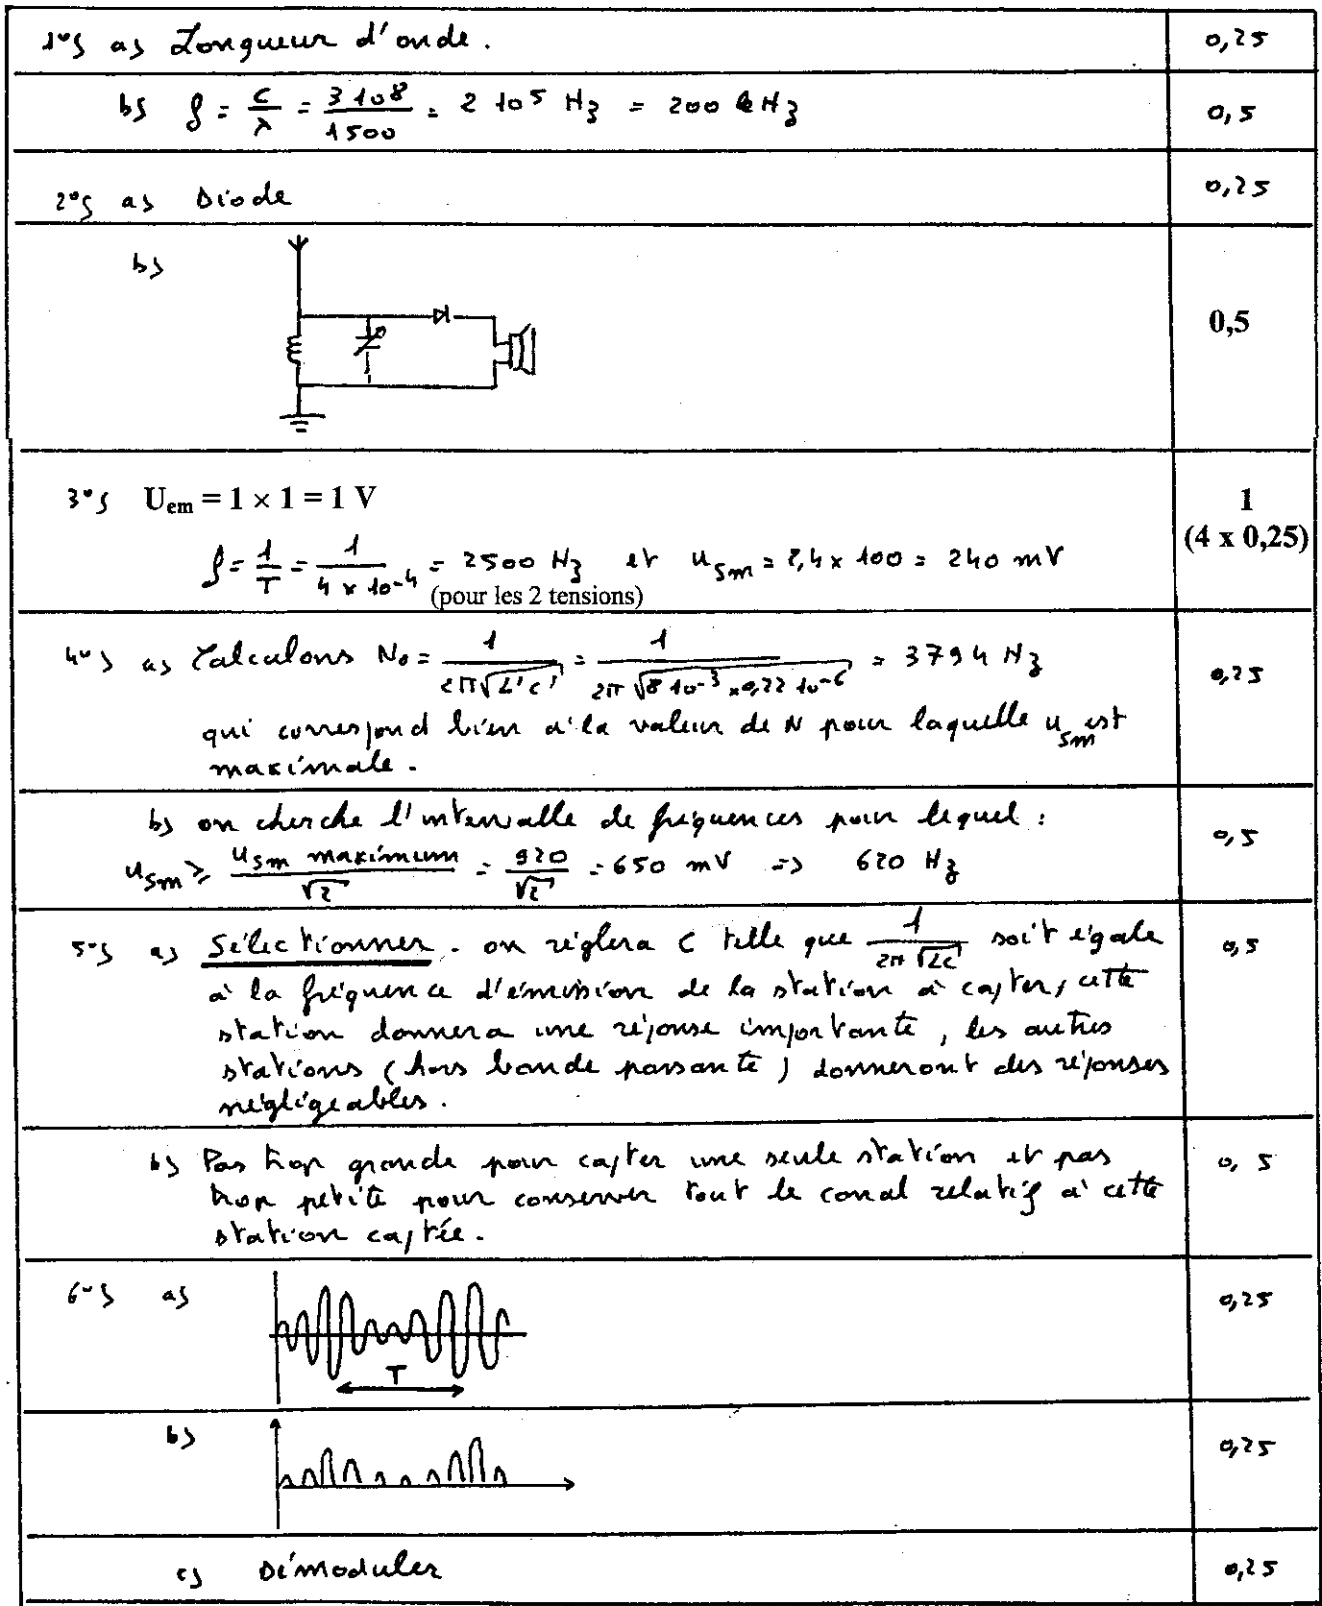 1°) a) Longueur d'onde. 0,25
b) f = c/λ = 3 10^8/1500 = 2 10^5 Hz = 200 kHz 0,5
2°) a) Diode 0,25
b) 0,5
3°) U_em = 1 × 1 = 1 V 1
(4 x 0,25)
f = 1/T = 1/(4 x 10^-4) = 2500 Hz et u_sm = 2,4 x 100 = 240 mV
(pour les 2 tensions)
4°) a) Calculons N₀ = 1/(2π√(L'C')) = 1/(2π√(8 10^-3 x 0,22 10^-6)) = 3794 Hz 0,25
qui correspond bien à la valeur de N pour laquelle u_sm est
maximale.
b) on cherche l'intervalle de fréquences pour lequel : 0,5
u_sm ≥ u_sm maximum/√2 = 920/√2 = 650 mV => 620 Hz
5°) a) Sélectionner. on réglera C telle que 1/(2π√(LC)) soit égale 0,5
à la fréquence d'émission de la station à capter, cette
station donnera une réponse importante, les autres
stations (hors bande passante) donneront des réponses
négligeables.
b) Pas trop grande pour capter une seule station et pas 0,5
trop petite pour conserver tout le canal relatif à cette
station captée.
6°) a) 0,25
T
b) 0,25
c) Démoduler 0,25